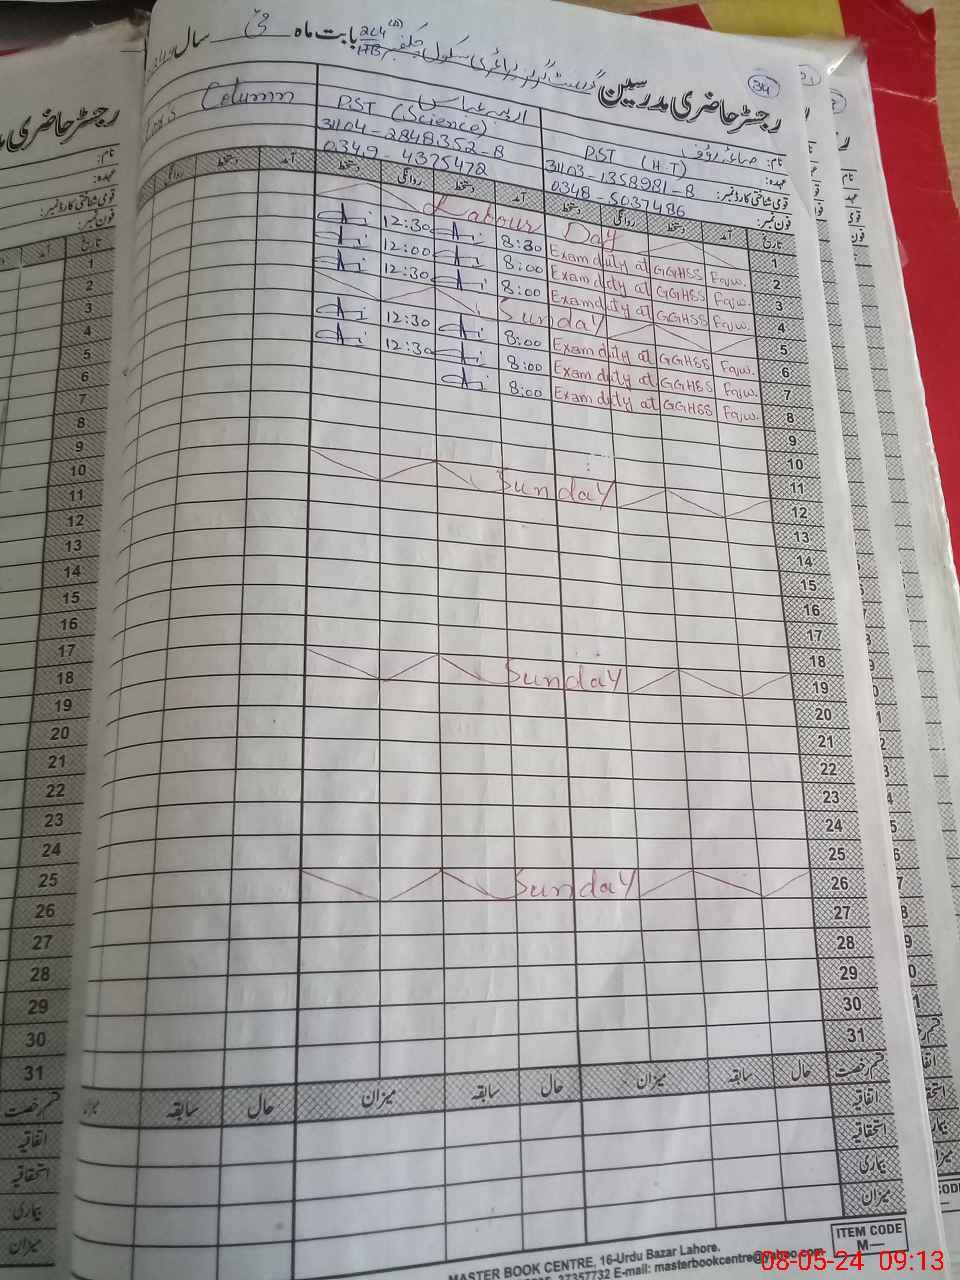 34
رجسٹر حاضری مدرسین گورنمنٹ گرلز پرائمری سکول چک نمبر 204 بابت ماہ مئی سال
نام:
عہدہ: PST (H.T)
قومی شناختی کارڈ نمبر: 31103-1358981-8
فون نمبر: 0348-5037486
PST (Science)
31104-2848352-8
0349-4375472
Column
تاریخ آمد دستخط روانگی دستخط آمد دستخط روانگی دستخط آمد دستخط روانگی
1 Labour Day
2 Exam duty at GGHSS Fqjw. 8:30 12:30
3 Exam duty at GGHSS Fqjw. 8:00 12:00
4 Exam duty at GGHSS Fqjw. 8:00 12:30
5 Sunday
6 Exam duty at GGHSS Fqjw. 8:00 12:30
7 Exam duty at GGHSS Fqjw. 8:00 12:30
8 Exam duty at GGHSS Fqjw. 8:00
9
10
11
12 Sunday
13
14
15
16
17
18
19 Sunday
20
21
22
23
24
25
26 Sunday
27
28
29
30
31
قسم رخصت حال سابقہ میزان حال سابقہ میزان حال سابقہ
اتفاقیہ
استحقاقیہ
بیماری
میزان
ITEM CODE
M—
MASTER BOOK CENTRE, 16-Urdu Bazar Lahore.
37357732 E-mail: masterbookcentre@yahoo.com
رجسٹر حاضری
نام:
عہدہ:
قومی شناختی کارڈ نمبر:
فون نمبر:
تاریخ آمد
1
2
3
4
5
6
7
8
9
10
11
12
13
14
15
16
17
18
19
20
21
22
23
24
25
26
27
28
29
30
31
قسم رخصت
اتفاقیہ
استحقاقیہ
بیماری
میزان
08-05-24 09:13